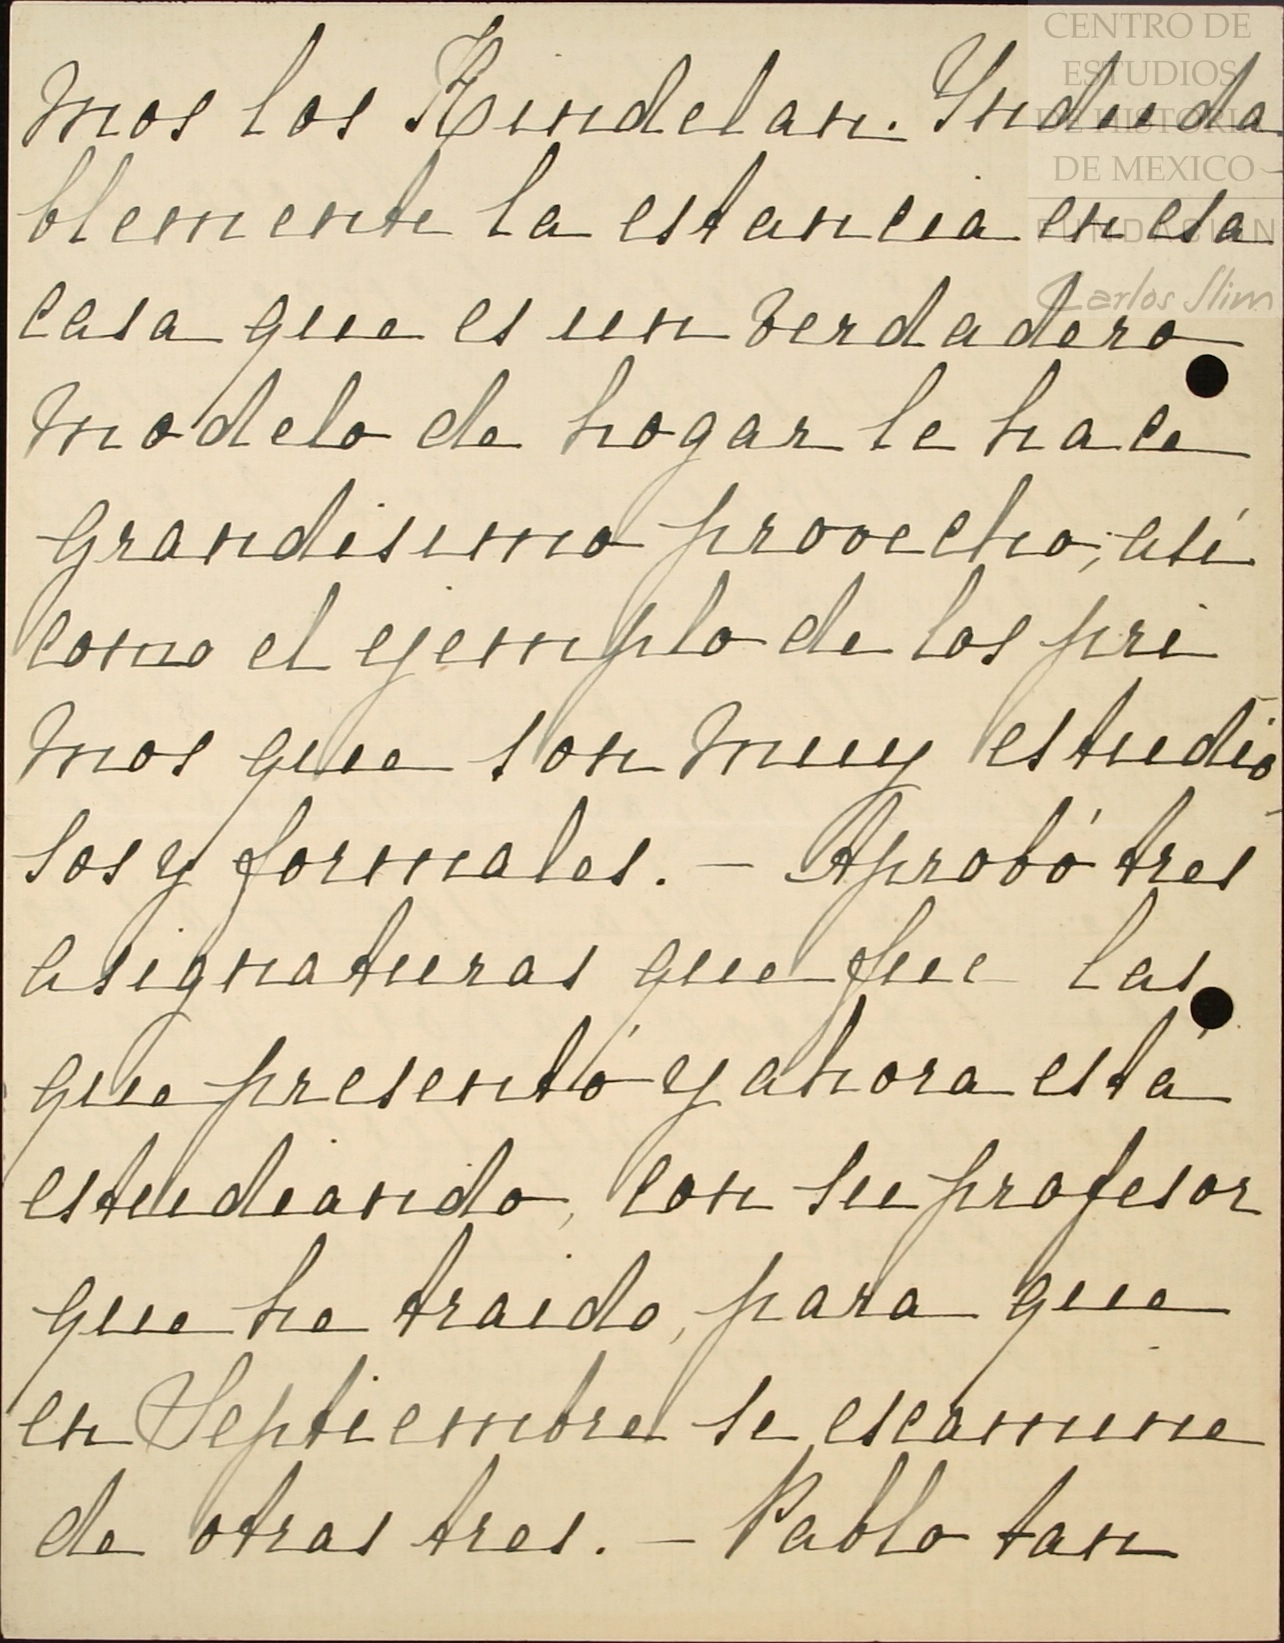 mos los Kindelan. Induda
blemente la estancia en esa
casa que es un verdadero
modelo de hogar le hace
grandisimo provecho, así
como el ejemplo de los pri
mos que son muy estudio-
sos y formales. — Aprobó tres
asignaturas que fue las
que presentó y ahora está
estudiando, con su profesor
que he traido, para que
en Septiembre se escamine
de otras tres. — Pablo tan
CENTRO DE
ESTUDIOS
DE HISTORIA
DE MEXICO
FUNDACION
Carlos Slim